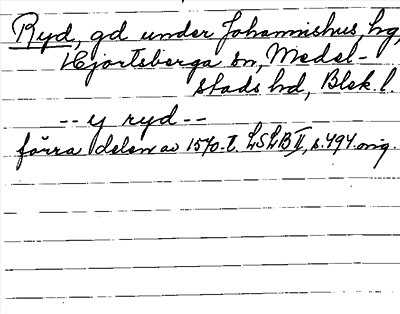 Ryd, gd under Johannishus, hg,
Hjortsberga sn, Medel-
stads hd, Blek. l.
-- y ryd --
förra delen av 1570-t. LSLB II, s. 494. orig.